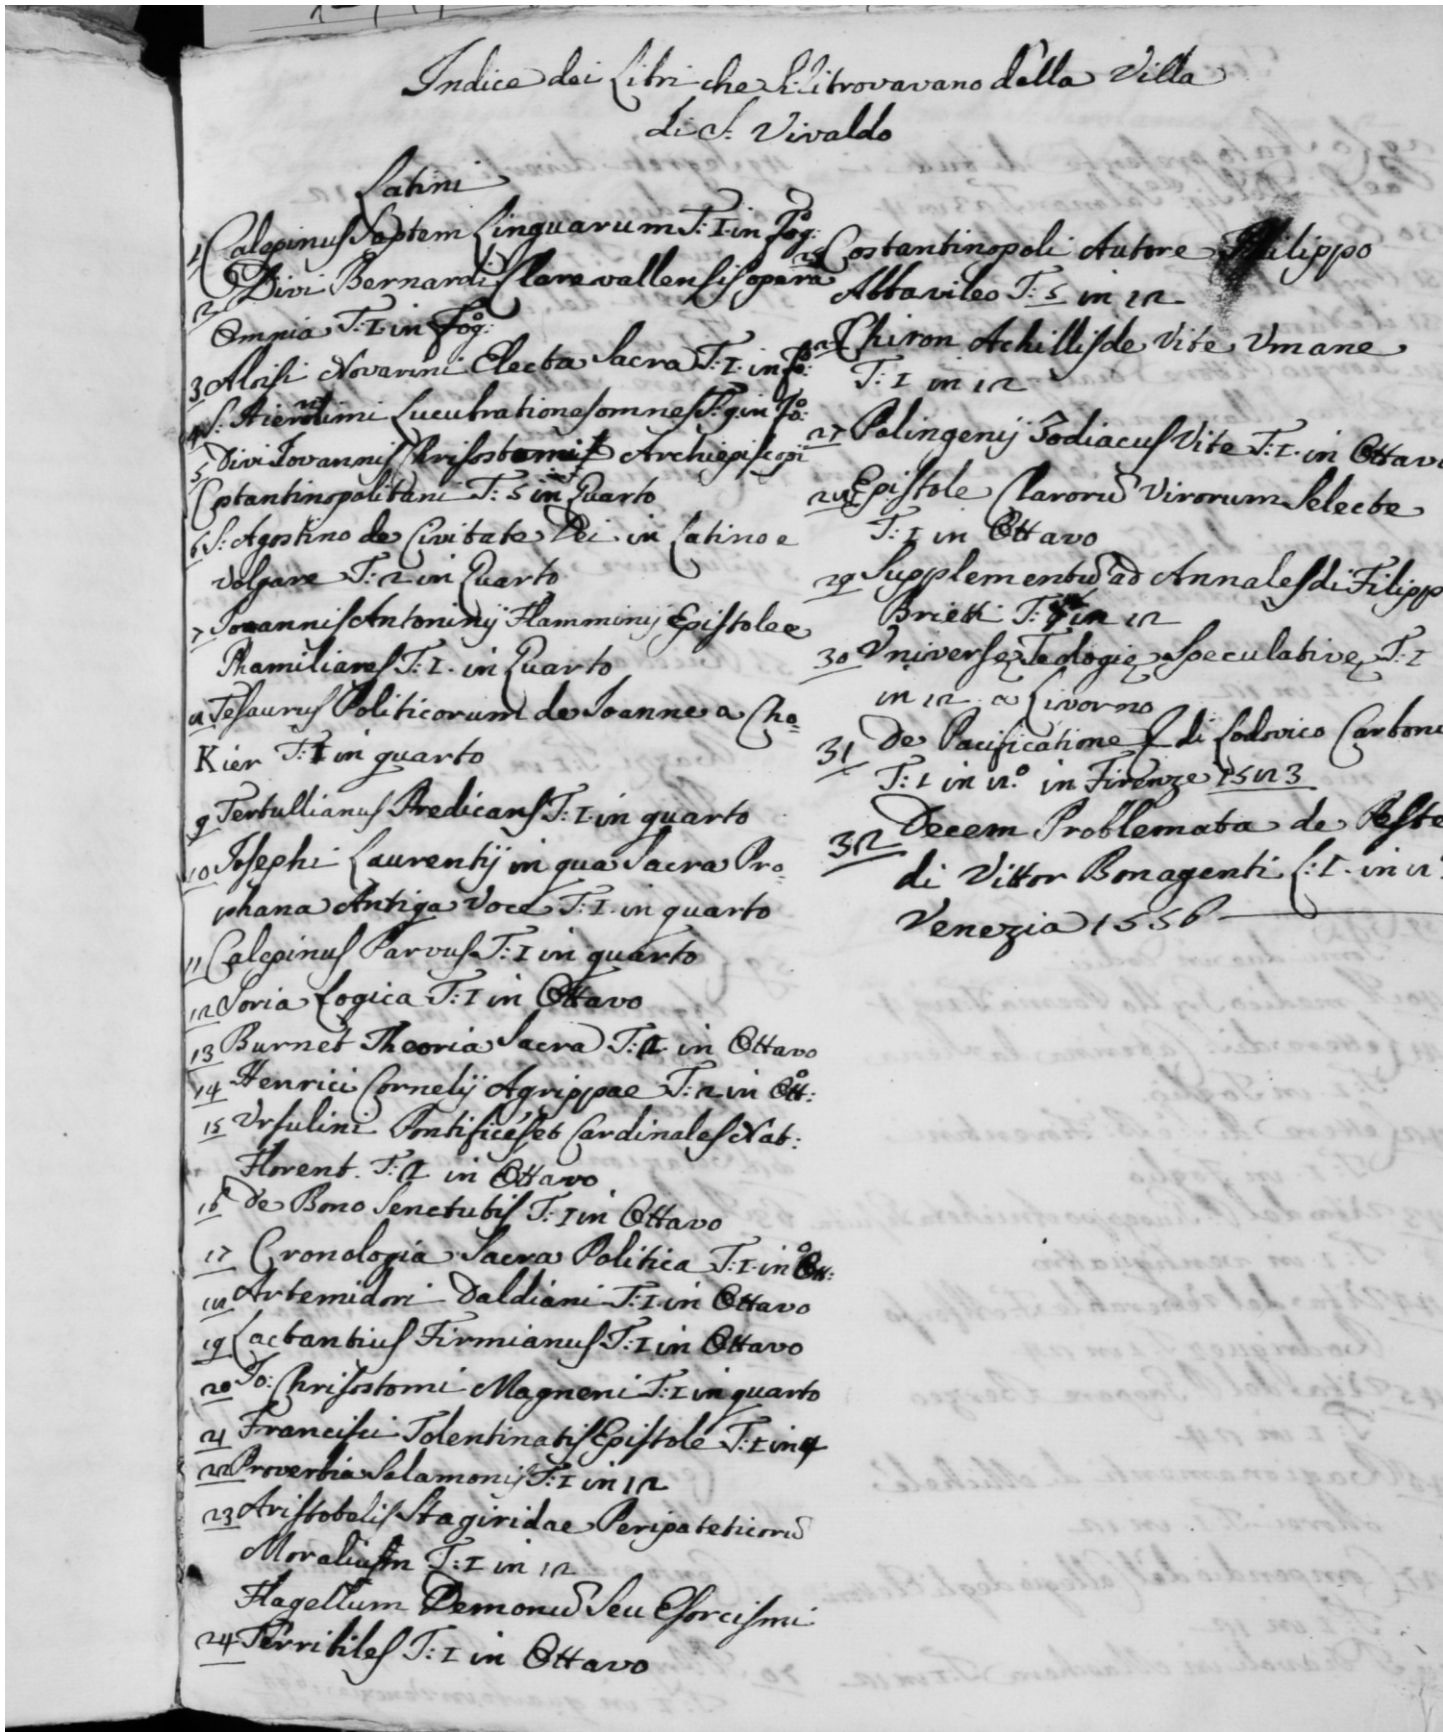 Indice dei Libri che si ritrovavano della Villa
di S: Vivaldo
Latini
1 Calepinus Septem Linguarum T: I. in Fog:
2 Divi Bernardi Clarevallensis opera
Omnia T: I. in Fog:
3 Aloisi Novarini Electa Sacra T: I. in Fo:
4 S: Hieronimi Lucubrationes omnes T: 9. in Fo:
5 Divi Iovannis Chrisostomi Archiepiscopi
Costantinopolitani T: 5 in Quarto
6 S: Agostino de Civitate Dei in Latino e
volgare T: 2 in Quarto
7 Joannis Antoninij Flamminij Epistolee
Phamiliares T: I. in Quarto
8 Tesaurus Politicorum de Joanne a Cho=
Kier T: I in quarto
9 Tertullianus Predicans T: I. in quarto
10 Josephi Laurentij in qua Sacra Pro=
phana Antiqa Voce T: I. in quarto
11 Calepinus Parvus T: I in quarto
12 Soria Logica T: I in Ottavo
13 Burnet Theoria Sacra T: 2. in Ottavo
14 Henrici Cornelij Agrippae T: 2 in Ott:
15 Ursulini Pontifices et Cardinales Nat:
Florent. T: 2 in Ottavo
16 De Bono Senctutis T: I in Ottavo
17 Cronologia Sacra Politica T: I. in Ott:
18 Artemidori Daldiani T: I. in Ottavo
19 Lactantius Firmianus T: I in Ottavo
20 Jo: Chrisostomi Magneni T: I in quarto
21 Francisci Tolentinatis Epistole T: I in 4
22 Proverbia Salamonis T: I in 12
23 Aristotelis Stagiridae Peripateticorũ
Moralium T: I in 12
Flagellum Demonũ Seu Esorcismi
24 Terribiles T: I in Ottavo
25 Costantinopoli Autore Philippo
Abbavileo T: 5 in 12
26 Chiron Achillis de Vite Umane
T: I in 12
27 Palingenij Zodiacus Vite T: I. in Ottavo
28 Epistole Clarorũ Virorum Selecte
T: I in Ottavo
29 Supplementũ ad Annales di Filipp
Brietti T: in 12
30 Universę Teologię Speculativę T: I
in 12 a Livorno
31 De Pacificatione di Lodovico Carbone
T: I in 8.º in Firenze 1583
32 Decem Problemata de Peste
di Vittor Bonagenti L: I. in 8º
Venezia 1556